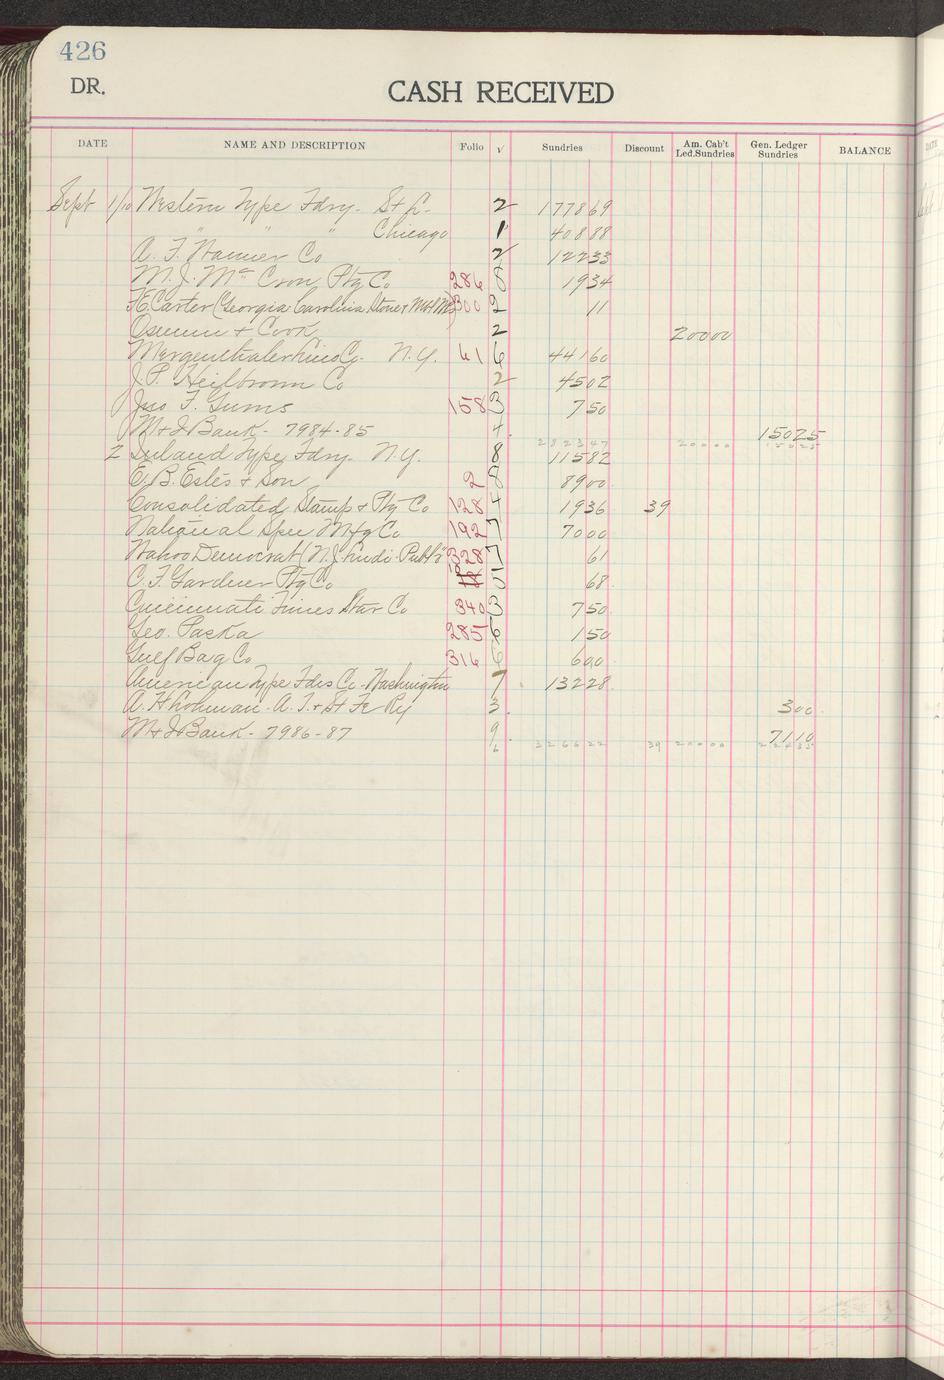 426
DR.
CASH RECEIVED
DATE NAME AND DESCRIPTION Folio √ Sundries Discount Am. Cab't Led.Sundries Gen. Ledger Sundries BALANCE
Sept 1/10 Western Type Fdry. St L. 2 177869
" " " Chicago 1 40888
A. F. Wanner Co 2 12233
M. J. Mc Ptg Co 286 8 1934
F E Carter (Georgia Carolina Stone + 300 2 11
+ Cook 2 20000
Mergenthaler Lino Co. N.Y. 61 6 44160
J. P. Heilbronn Co 2 4502
Jno F. Gums 158 3 750
M + I Bank - 7984-85 4 15025
282347 20000 15025
2 Inland Type Fdry. N.Y. 8 11582
E. B. Estes + Son 2 8 8900
Consolidated Stamp + Ptg Co 128 4 1936 39
National Spec Mfg Co 192 7 7000
Wahoo Democrat (N. J. 328 7 61
C. F. Gardner Ptg Co 5 68
Cincinnati Times Star Co 340 3 750
Geo. Paska 285 6 150
Gulf Bag Co 316 6 600
American Type Fdrs Co - Washington 7 13228
A. H. Lohman - A. T. + St Fe Ry 3 300
M + I Bank - 7986-87 9 7110
6 326622 39 20000 22435